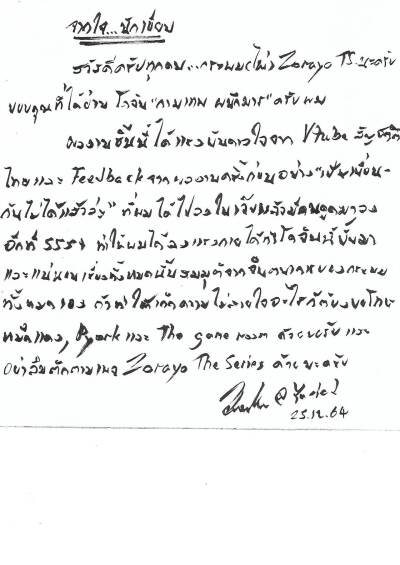 จากใจ...นักเขียน
สวัสดีครับทุกคน...กระผม Zorayo TS. นะครับ
ขอบคุณที่ได้อ่าน โดจิน "กามเทพ ผนึกมาร" ครับผม
ผลงานชิ้นนี้ได้แรงบันดาลใจจาก Vtube สัญชาติ
ไทยและ Feedback จากผลงานครั้งก่อนอย่าง "เป็นเพื่อน-
กันไม่ได้แล้วล่ะ" ที่ผมได้ไปลงใน
อีกที 555+ ทำให้ผมได้ลงแรงกายได้ทำโดจินนี้ขึ้นมา
และแน่นอนเรื่องทั้งหมดนั้นสมมุติจากจินตนาการของกระผม
ทั้งหมดเอง ถ้าทำให้เกิดความไม่สบายใจอะไรก็ต้องขอโทษ
หมึกแดง, และ The game room ด้วยขอรับ และ
อย่าลืมติดตามเพจ Zorayo The Series ด้วยนะครับ
25.12.64